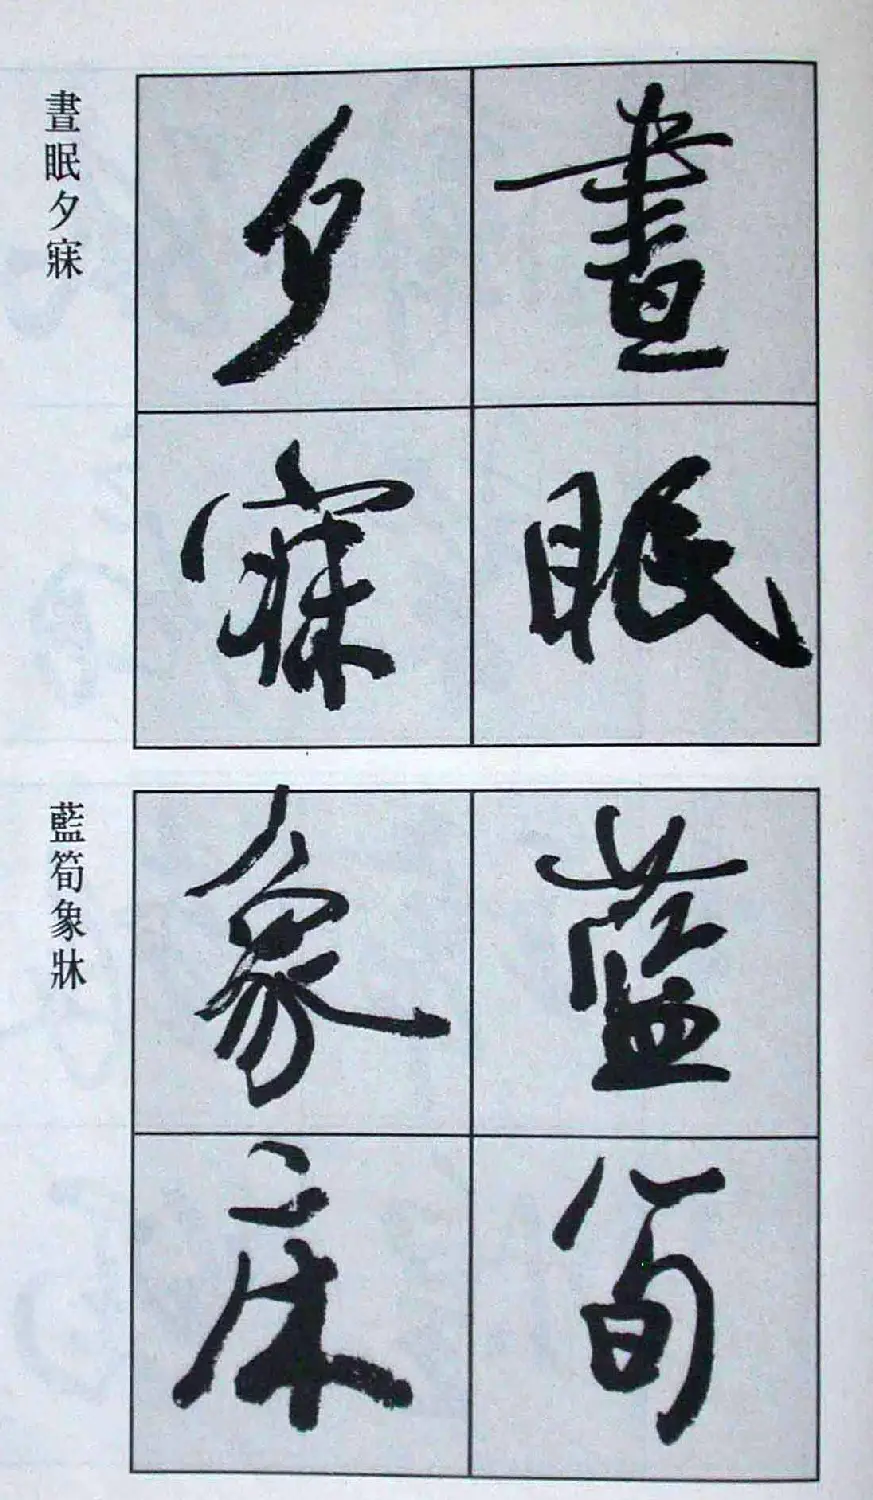 晝眠
夕寐
晝眠夕寐
藍筍
象床
藍筍象牀